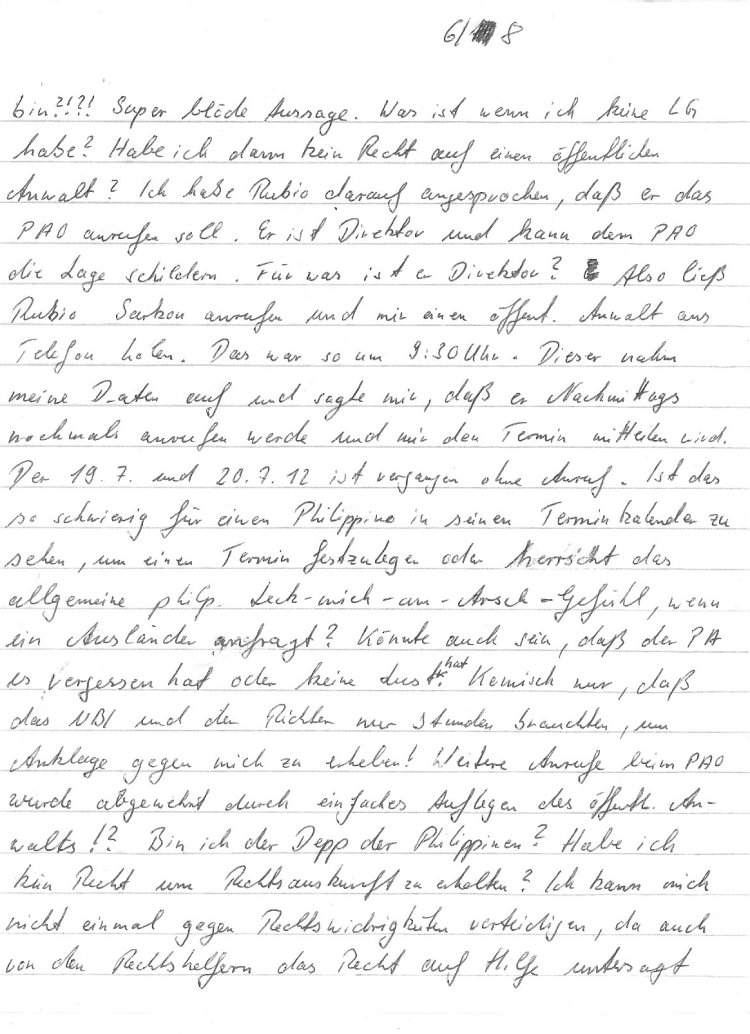 6/8
bin?!?! Super blöde Aussage. Was ist wenn ich keine LG
habe? Habe ich dann kein Recht auf einen öffentlichen
Anwalt? Ich habe Rubio darauf angesprochen, daß er das
PAO anrufen soll. Er ist Direktor und kann dem PAO
die Lage schildern. Für was ist er Direktor? Also ließ
Rubio anrufen und mir einen öffent. Anwalt ans
Telefon holen. Das war so um 9:30 Uhr. Dieser nahm
meine Daten auf und sagte mir, daß er Nachmittags
nochmals anrufen werde und mir den Termin mitteilen wird.
Der 19.7. und 20.7.12 ist vergangen ohne Anruf. Ist das
so schwierig für einen Philippino in seinen Terminkalender zu
sehen, um einen Termin festzulegen oder herrscht das
allgemeine philp. Leck-mich-am-Arsch-Gefühl, wenn
ein Ausländer anfragt? Könnte auch sein, daß der PA
es vergessen hat oder keine Lust hat. Komisch nur, daß
das NBI und der Richter nur Stunden brauchten, um
Anklage gegen mich zu erheben! Weitere Anrufe beim PAO
wurde abgewehrt durch einfaches Auflegen des öffentl. An-
walts!? Bin ich der Depp der Philippinen? Habe ich
kein Recht um Rechtsauskunft zu erhalten? Ich kann mich
nicht einmal gegen Rechtswidrigkeiten verteidigen, da auch
von den Rechtshelfern das Recht auf Hilfe untersagt